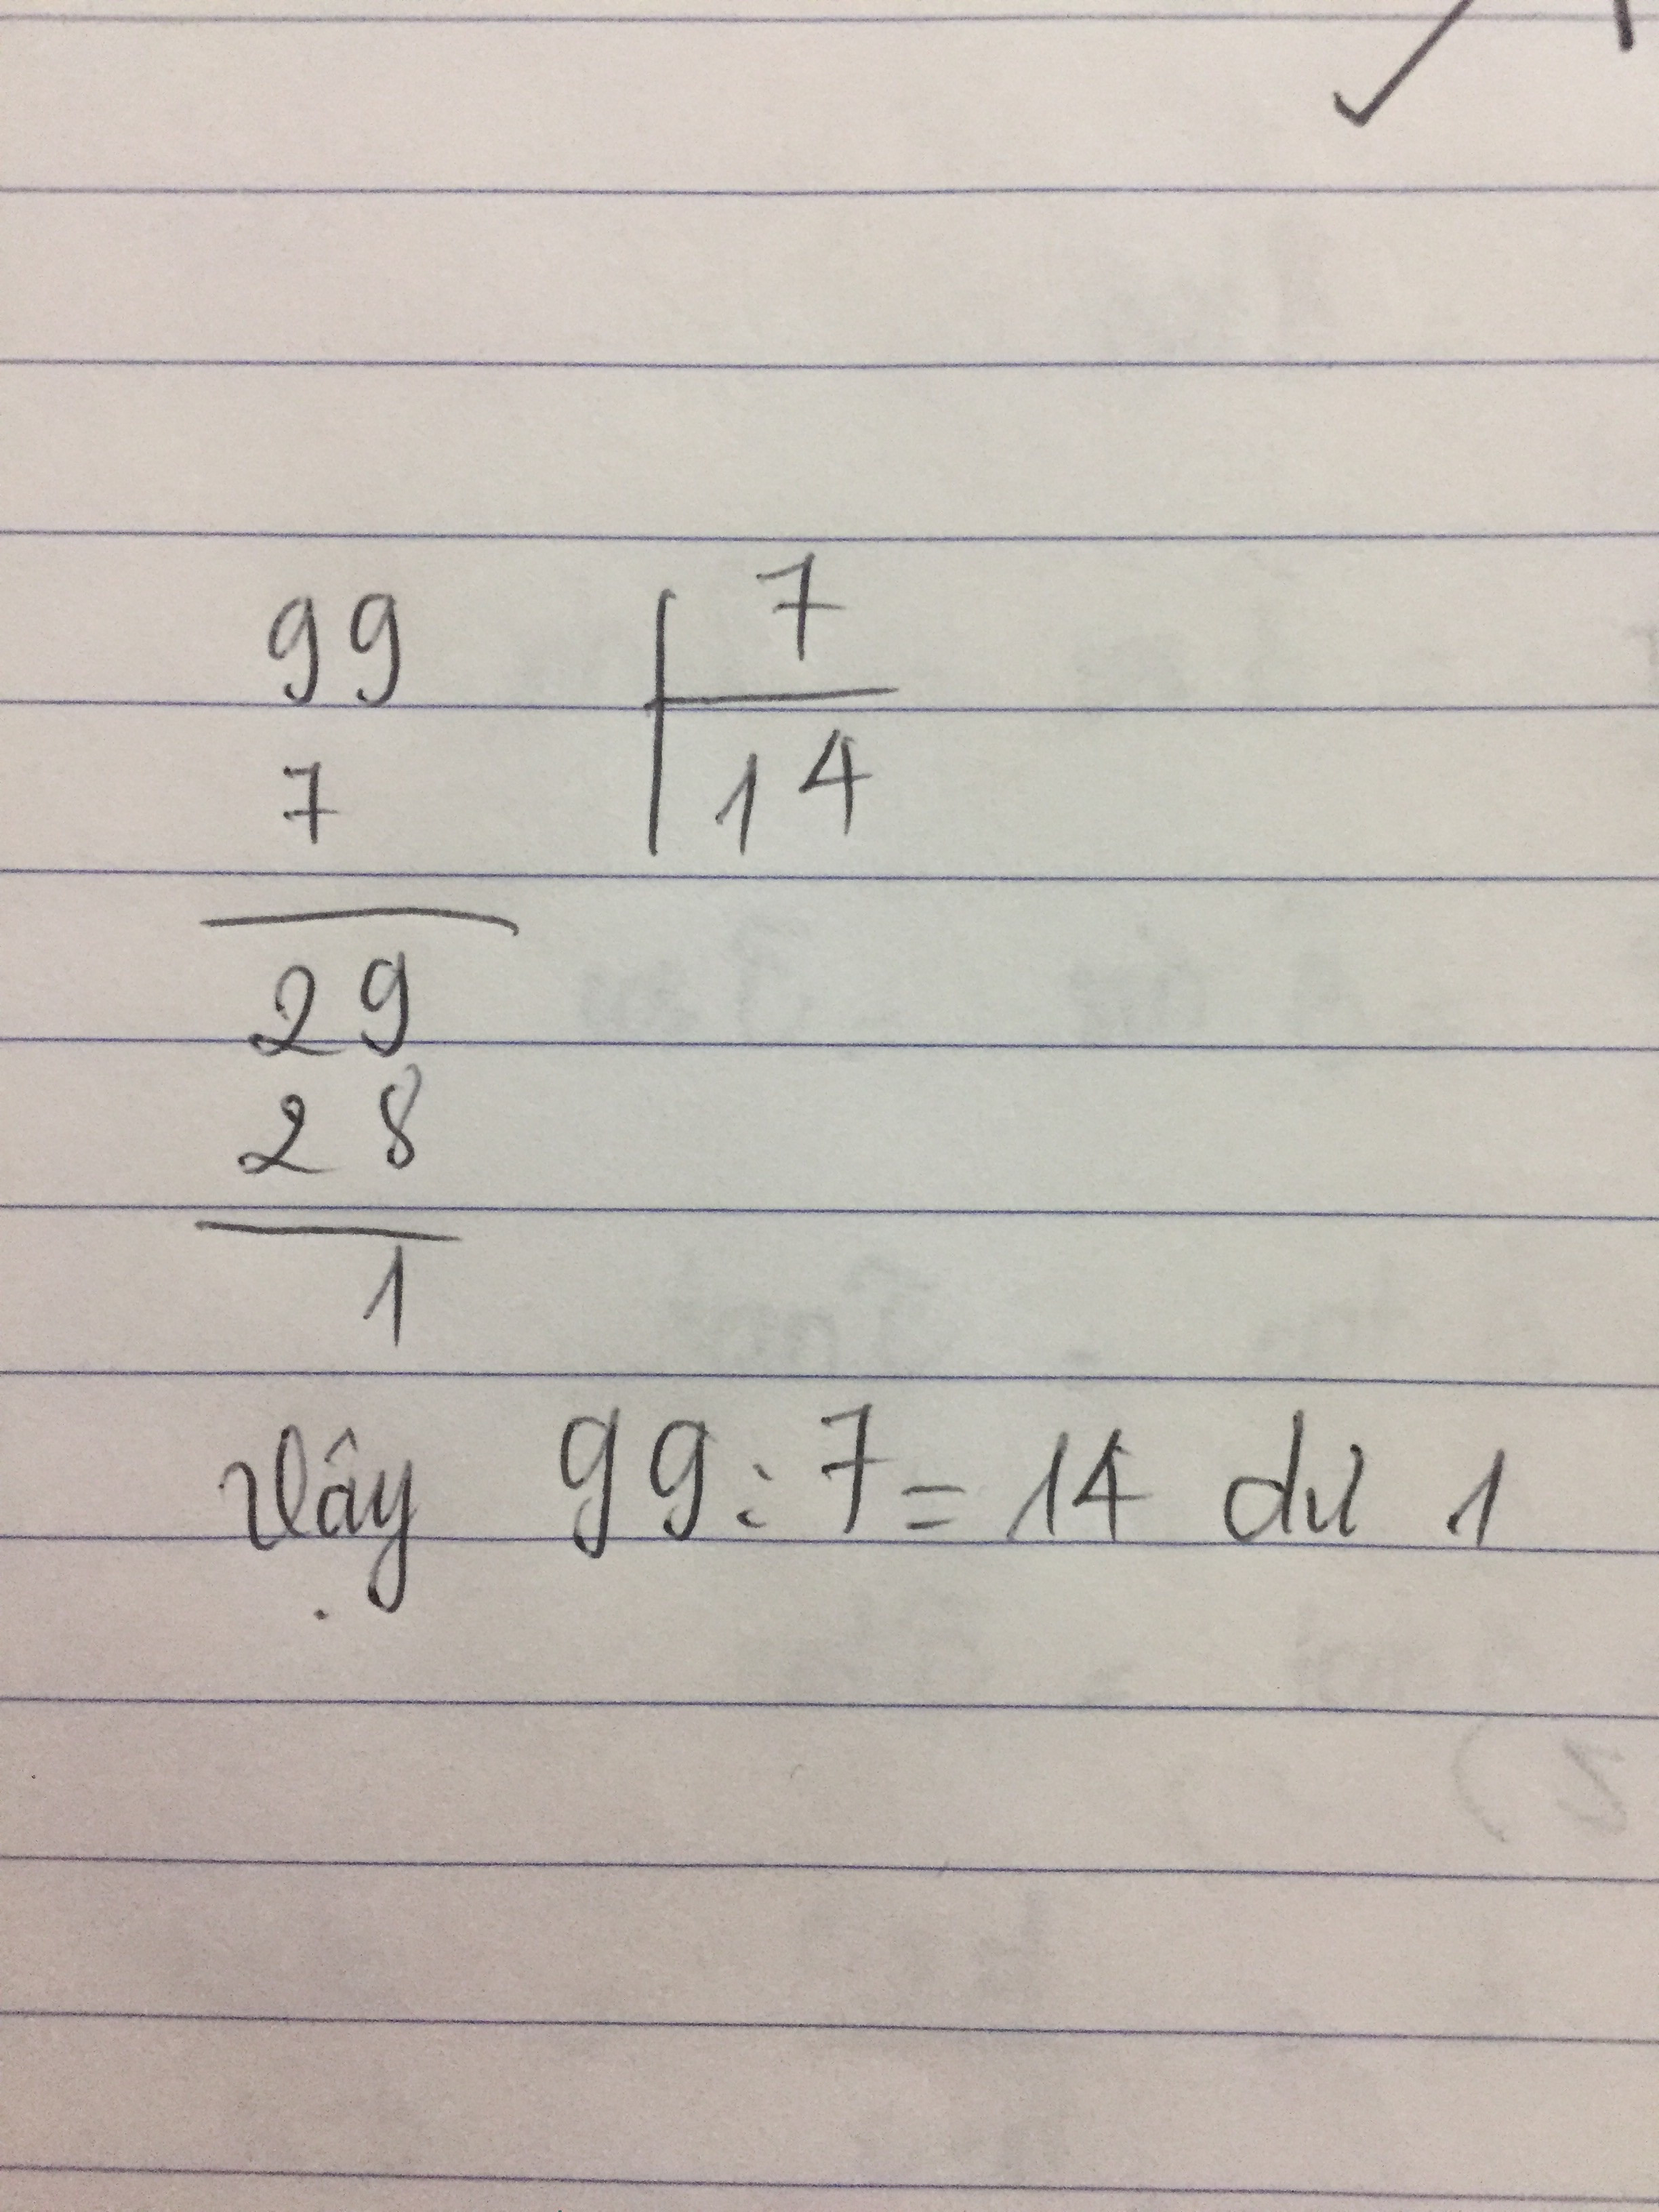 99 | 7
7 | 14
29
28
1
Vậy 99 : 7 = 14 dư 1